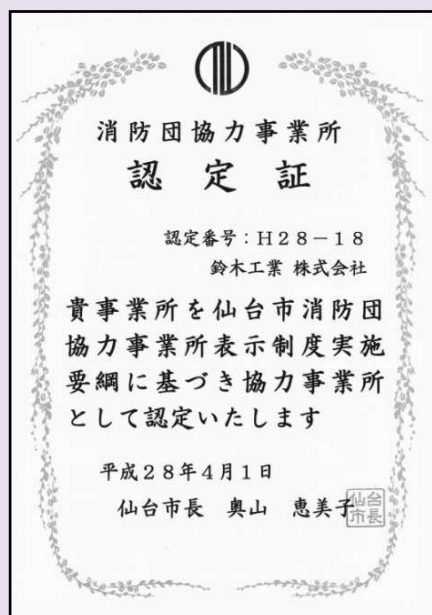 消防団協力事業所
認定証
認定番号：Ｈ２８－１８
鈴木工業 株式会社
貴事業所を仙台市消防団
協力事業所表示制度実施
要綱に基づき協力事業所
として認定いたします
平成２８年４月１日
仙台市長　奥山　恵美子
仙台
市長